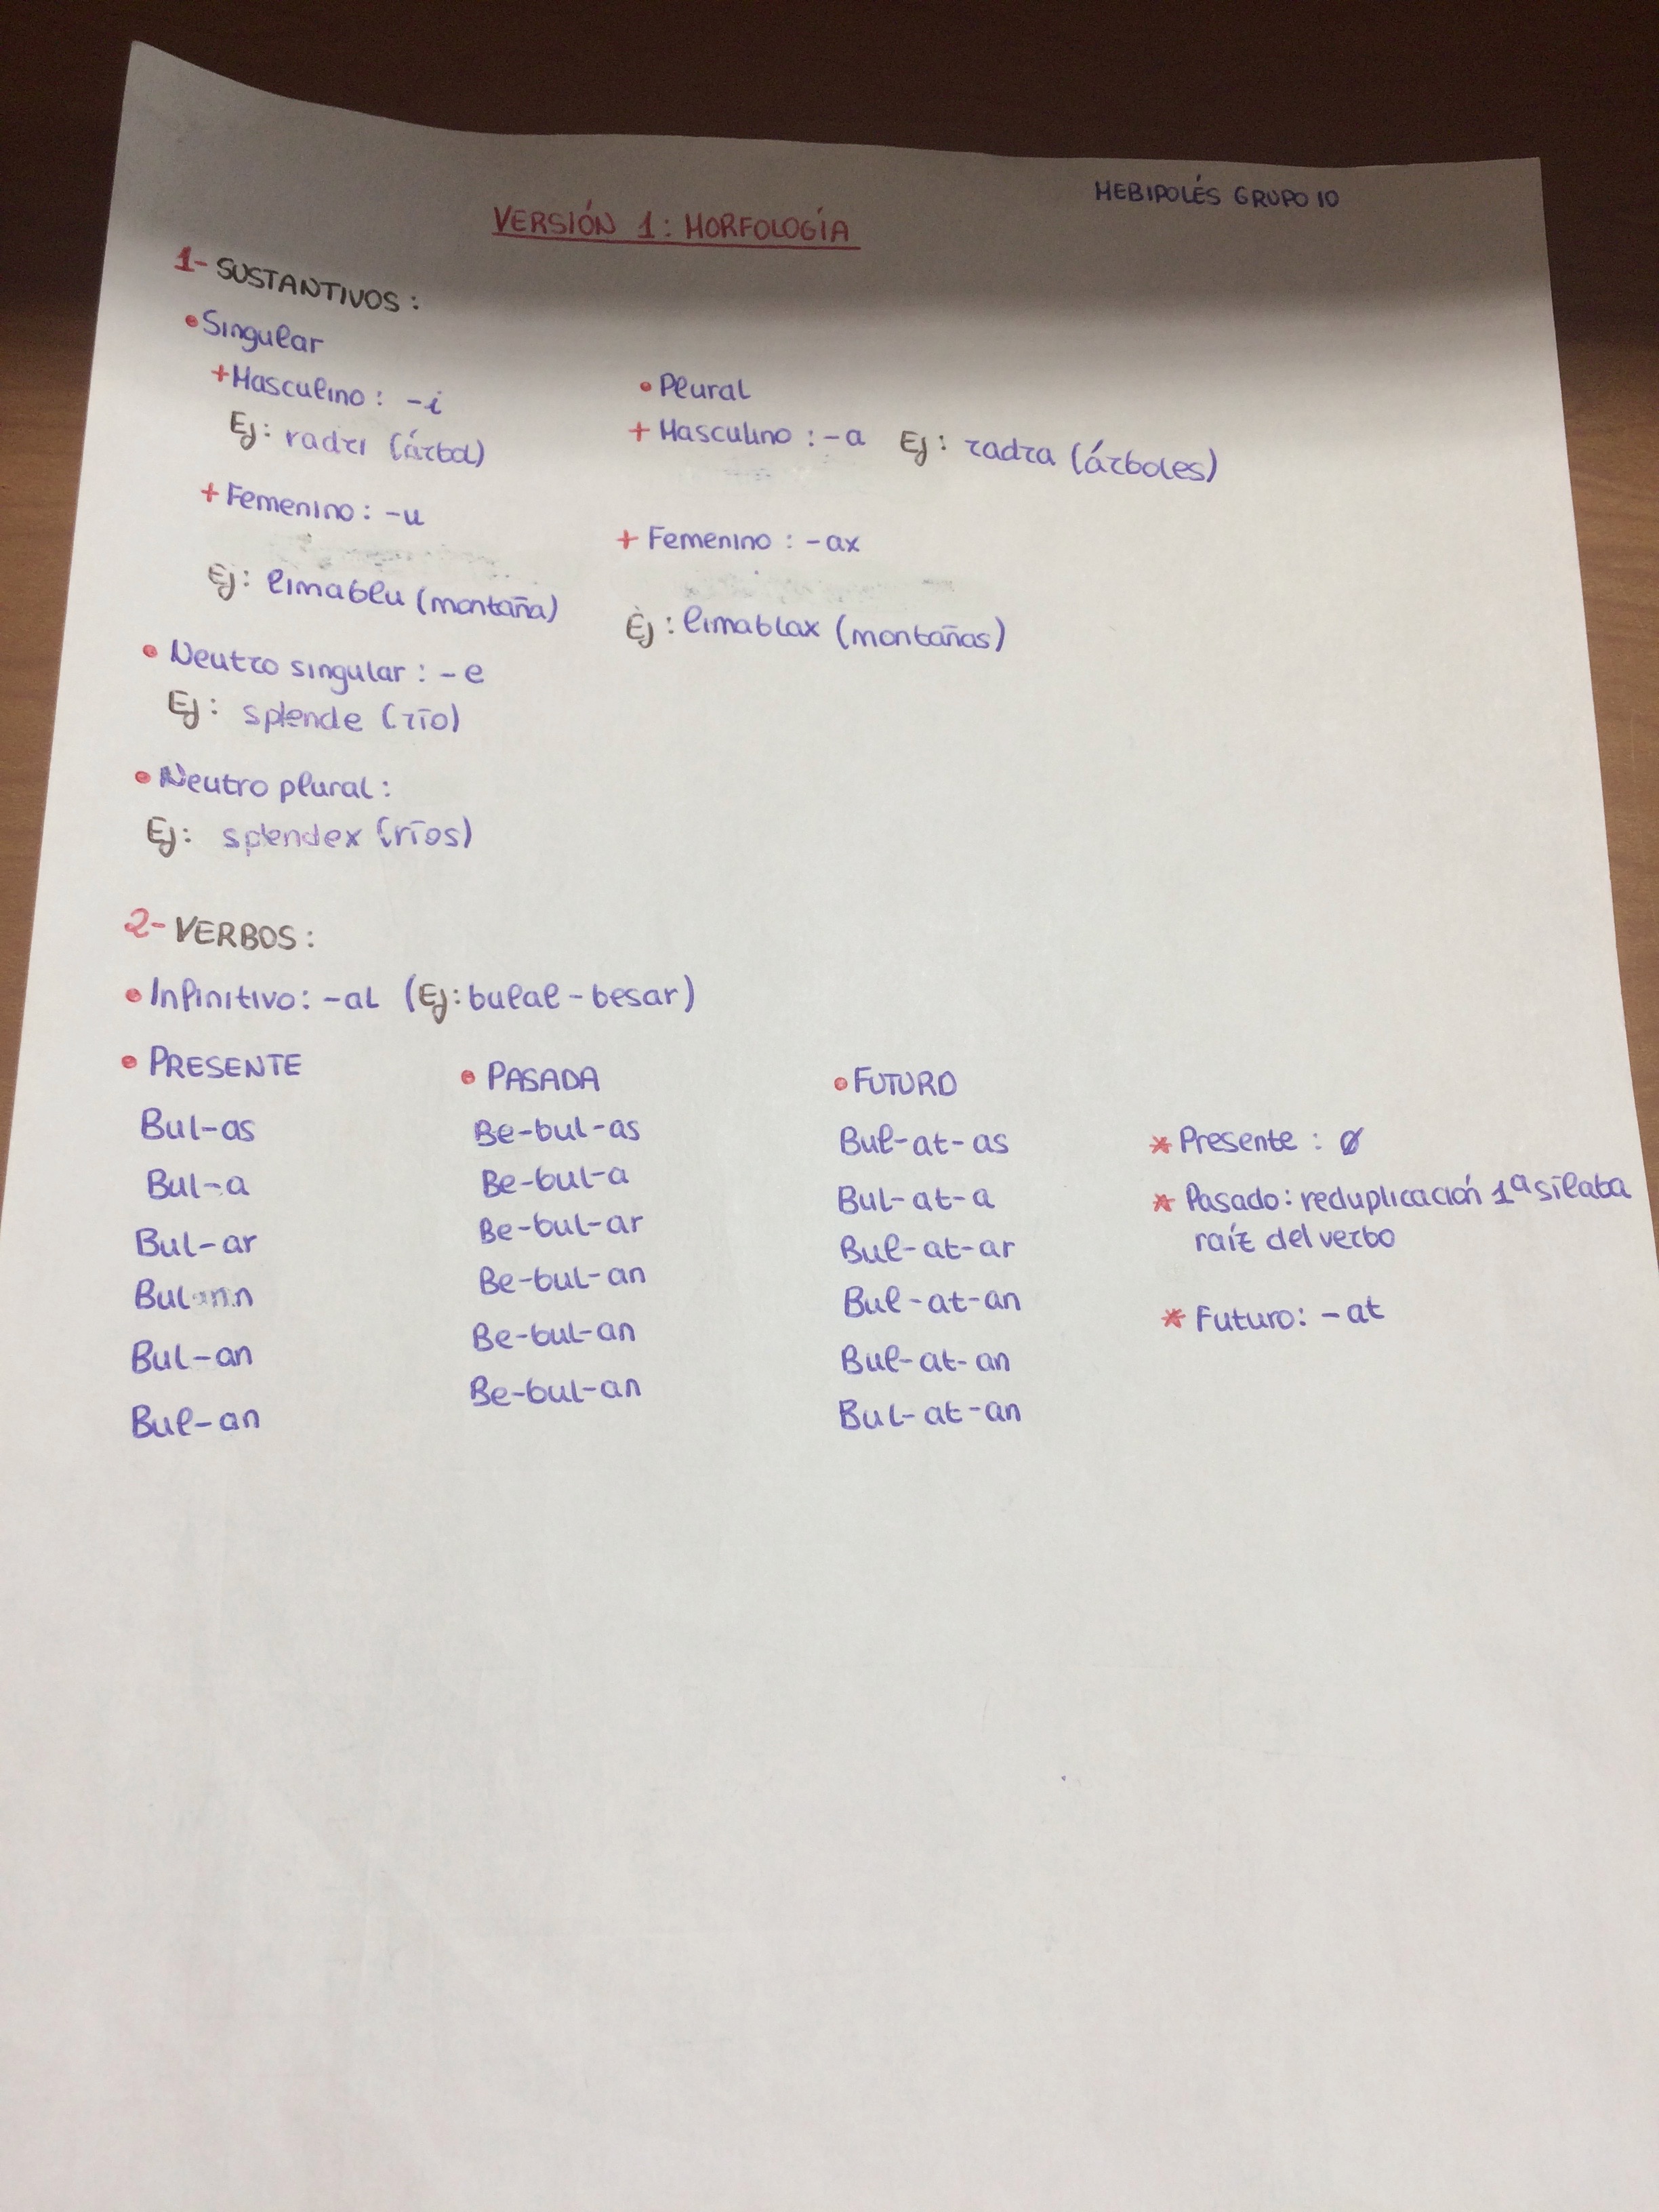 MEBIPOLÉS GRUPO 10
VERSIÓN 1: MORFOLOGÍA
1- SUSTANTIVOS:
• Singular
+ Masculino: -i
Ej: radri (árbol)
+ Femenino: -u
Ej: limablu (montaña)
• Plural
+ Masculino: -a Ej: radra (árboles)
+ Femenino: -ax
Ej: limablax (montañas)
• Neutro singular: -e
Ej: splende (río)
• Neutro plural:
Ej: splendex (ríos)
2- VERBOS:
• Infinitivo: -al (Ej: bulal - besar)
• PRESENTE
Bul-as
Bul-a
Bul-ar
Bul-an
Bul-an
• PASADA
Be-bul-as
Be-bul-a
Be-bul-ar
Be-bul-an
Be-bul-an
Be-bul-an
• FUTURO
Bul-at-as
Bul-at-a
Bul-at-ar
Bul-at-an
Bul-at-an
Bul-at-an
* Presente: ø
* Pasado: reduplicación 1ª sílaba
raíz del verbo
* Futuro: -at